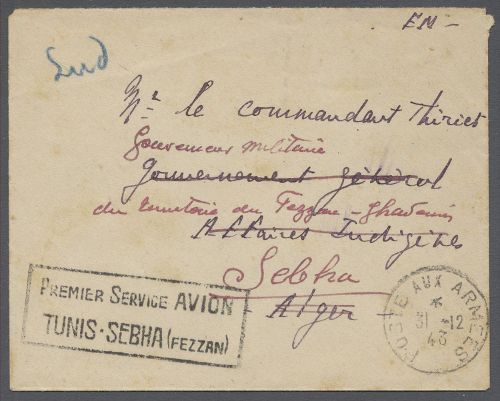 EM -
Sud
Mr le commandant Thiriet
Gouverneur militaire
Gouvernement général
du territoire du Fezzan - Ghadamès
Affaires Indigènes
Sebha
Alger
PREMIER SERVICE AVION
TUNIS - SEBHA (FEZZAN)
POSTE AUX ARMÉES
*
31 - 12
43